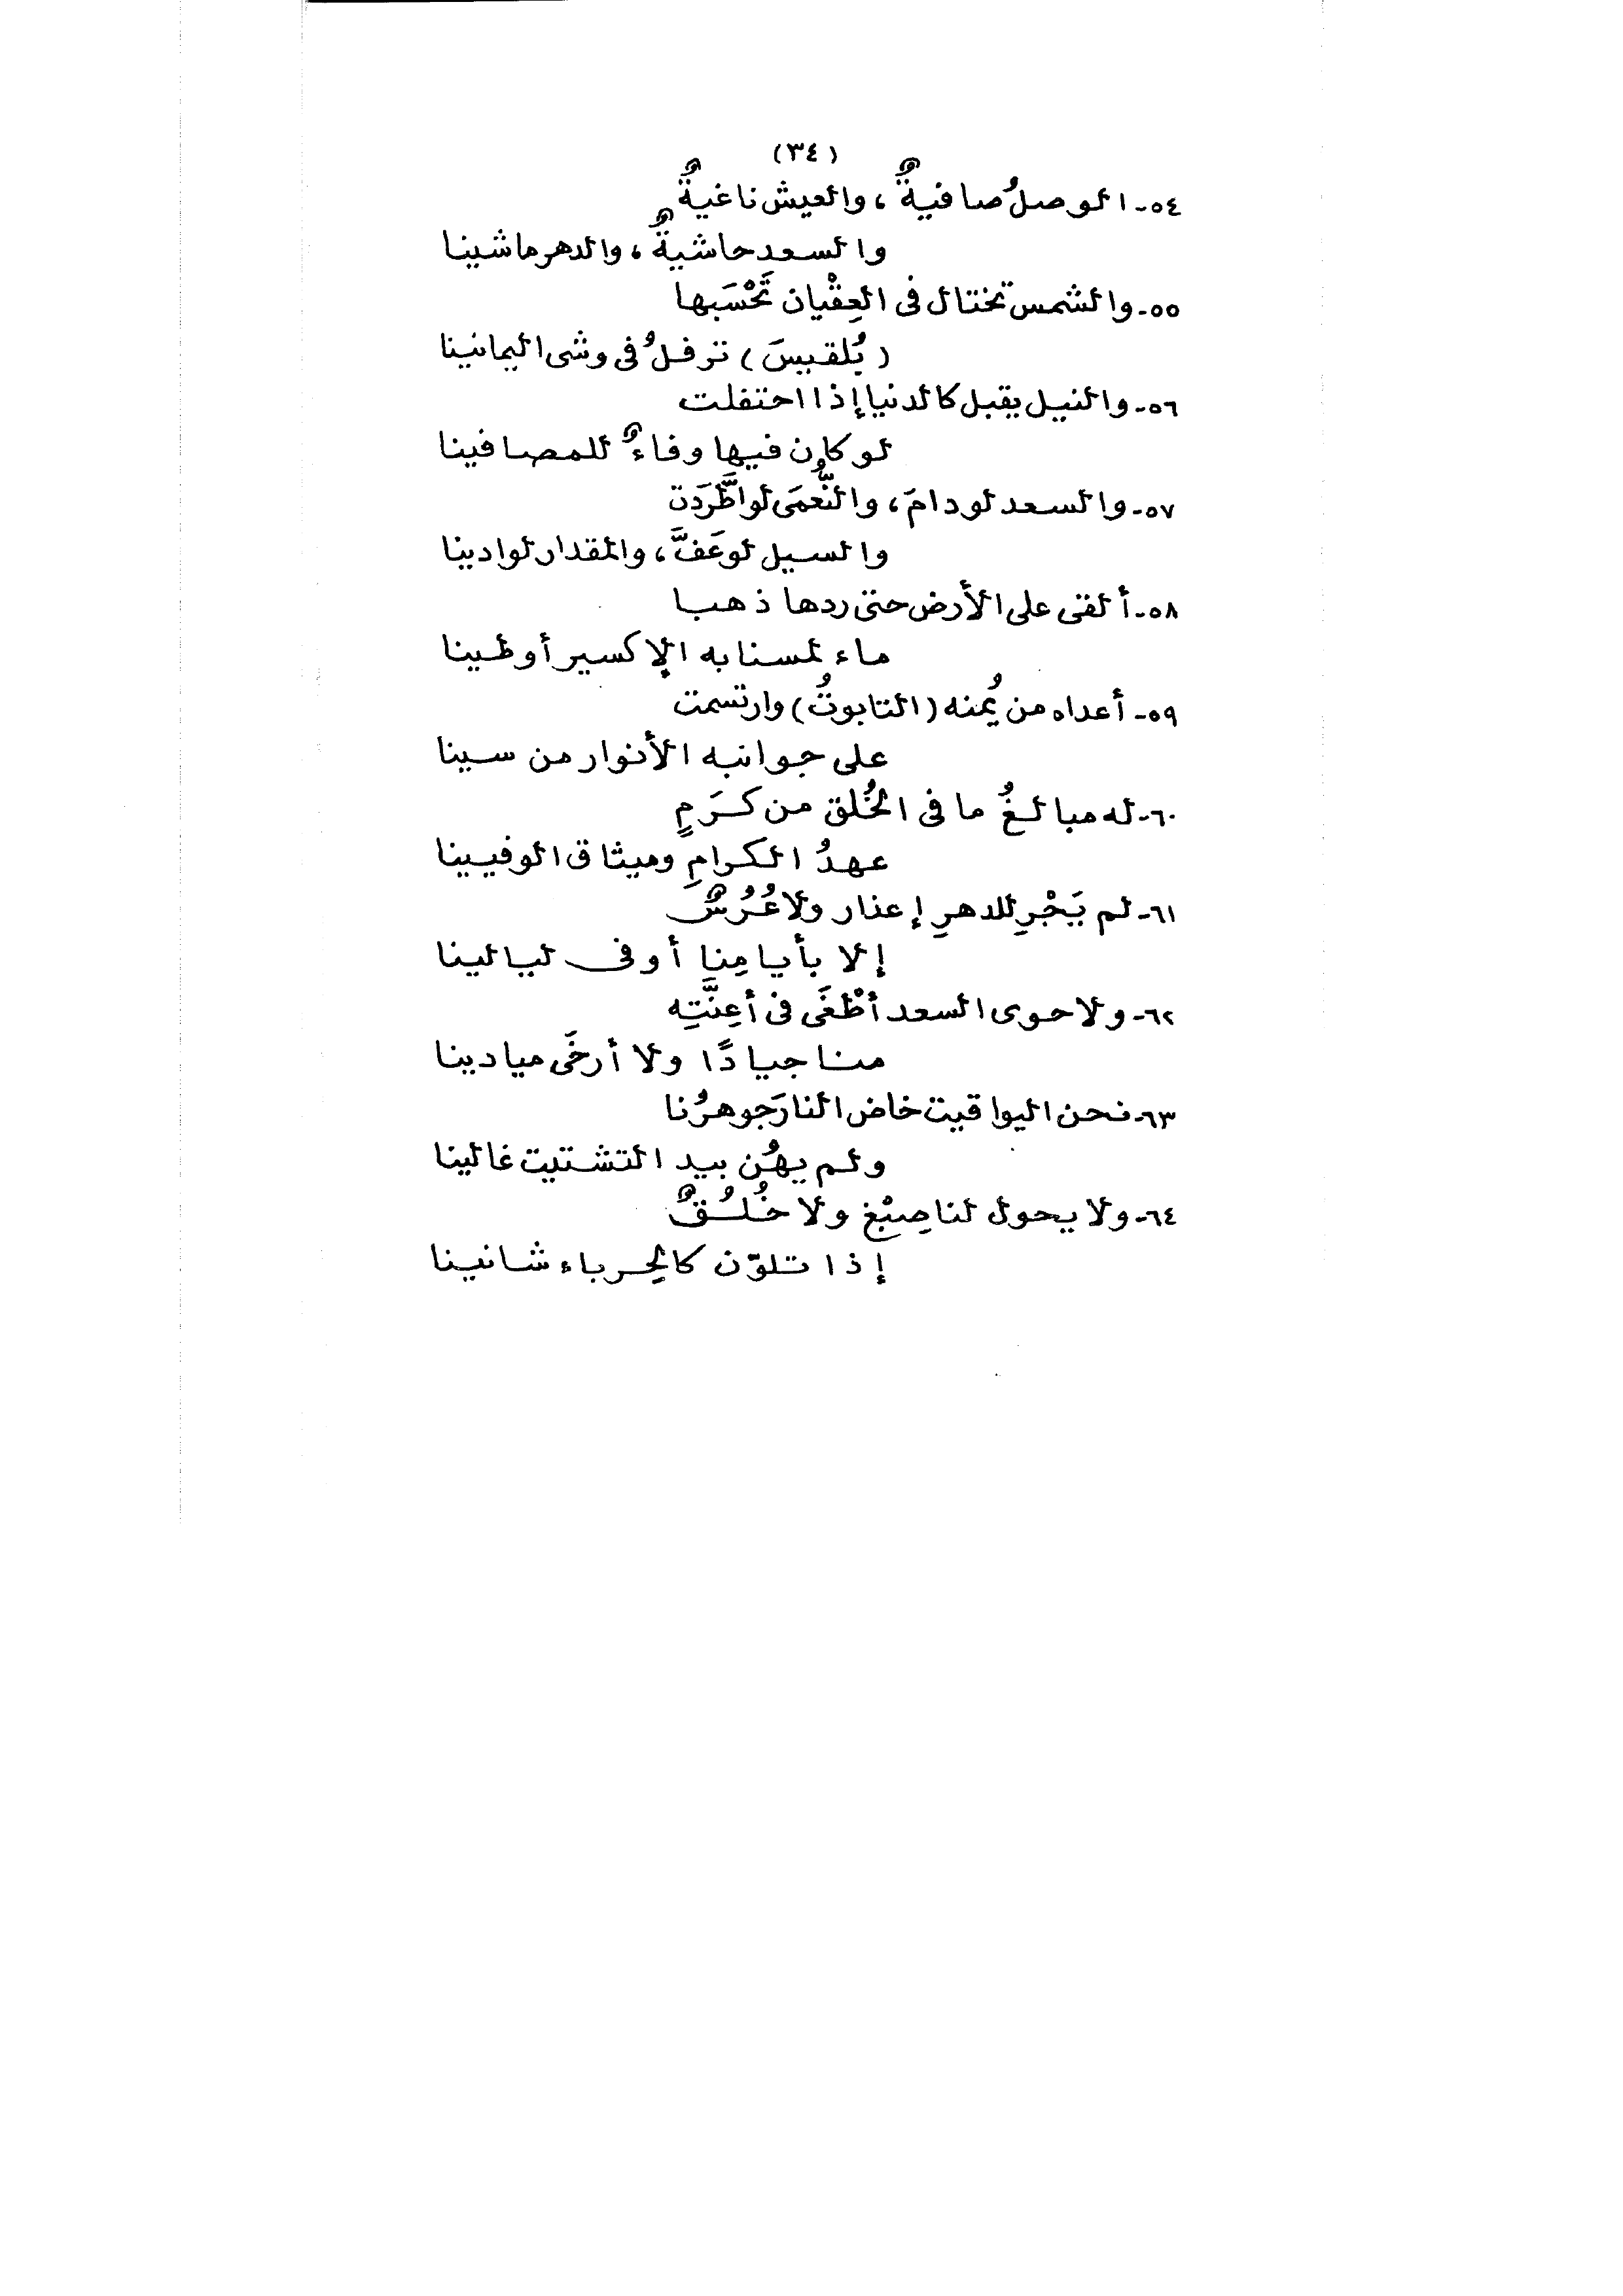 (٣٤)
٥٤- الوصلُ صافيةٌ ، والعيش ناغيةٌ
والسعد حاشيةٌ ، والدهر ماشينا
٥٥- والشمس تختال فى العِقْيان تَحْسَبها
(بُلقيسَ) ترفلُ فى وشى اليمانينا
٥٦- والنيل يقبل كالدنيا إذا احتفلت
لو كان فيها وفاءٌ للمصافينا
٥٧- والسعد لو دامَ ، والنُّعمَى لو اطَّرَدَت
والسيل لو عَفَّ ، والمقدار لو ادينا
٥٨- ألقى على الأرض حتى ردها ذهبا
ماء لمسنا به الإكسير أو طينا
٥٩- أعداه من يُمنه (التابوتُ) وارتسمت
على جوانبه الأنوار من سينا
٦٠- له مبالغُ ما فى الخُلق من كَرَمٍ
عهدُ الكرامِ وميثاق الوفيينا
٦١- لم يَجْرِ للدهرِ إعذار ولا عُرُسٌ
إلا بأيامِنا أو فى ليالينا
٦٢- ولا حوى السعد أطْغَى فى أعِنَّتِه
منا جيادًا ولا أرخَى ميادينا
٦٣- نحن اليواقيت خاض النارَ جوهرُنا
ولم يهُن بيد التشتيت غالينا
٦٤- ولا يحول لنا صِبْغ ولا خُلُقٌ
إذا تلوّن كالحِرباء شانينا